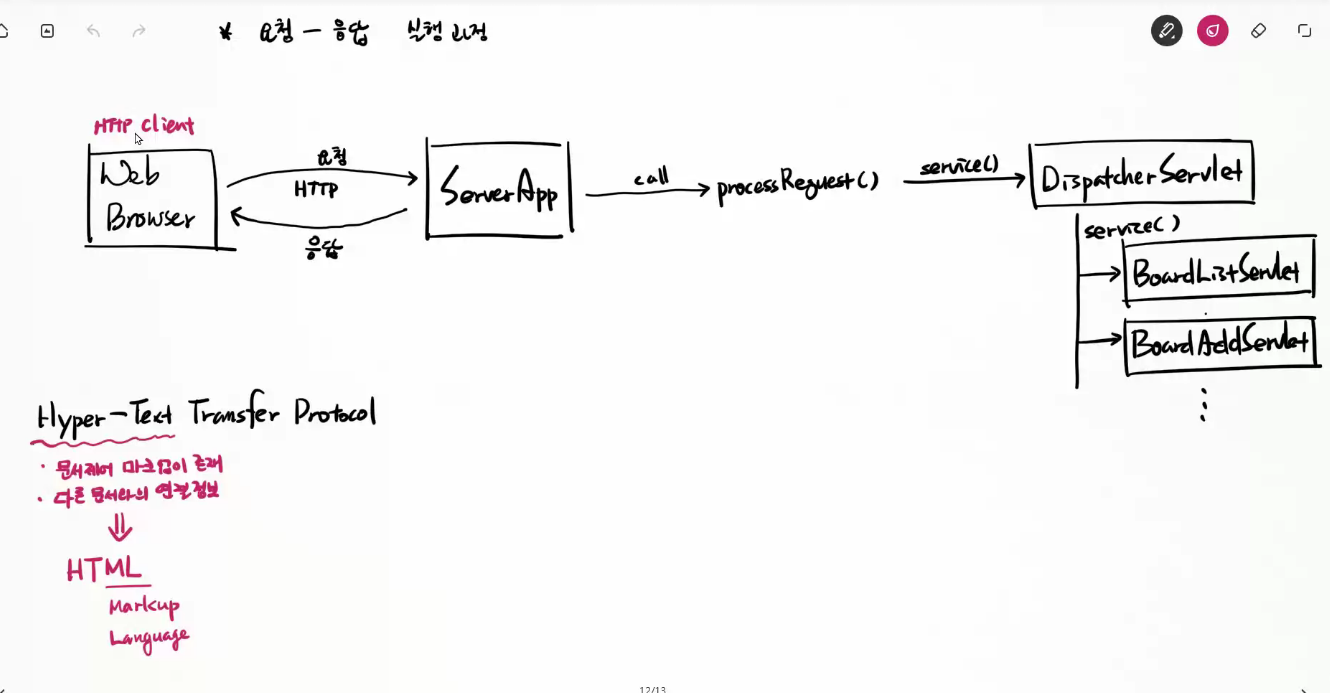 * 요청 – 응답 실행 과정
HTTP client
Web
Browser
요청
HTTP
응답
ServerApp
call
processRequest()
service()
DispatcherServlet
service()
BoardListServlet
BoardAddServlet
Hyper-Text Transfer Protocol
· 문서제어 마크업이 존재
· 다른 문서와의 연결정보
HTML
Markup
Language
12/13